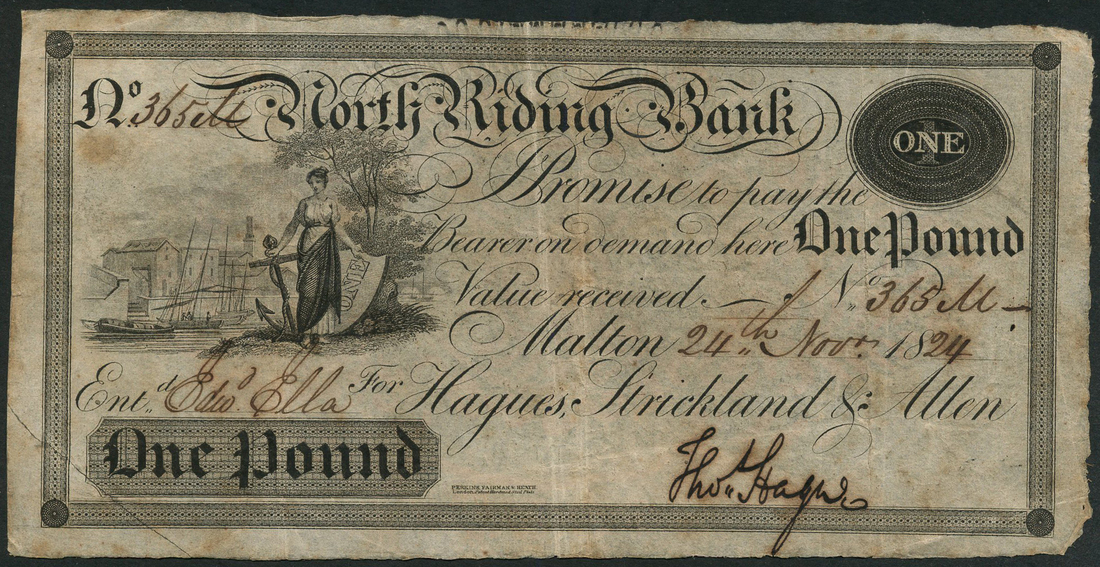 No. 365 M North Riding Bank
ONE
I Promise to pay the
Bearer on demand here One Pound
ONE
Value received. No. 365 M
Malton 24th Novr. 1824
Entd. Edwd. Ella For Hagues, Strickland & Allen
One Pound
Thos. Hague
PERKINS, FAIRMAN & HEATH
London, Patent Hardened Steel Plate